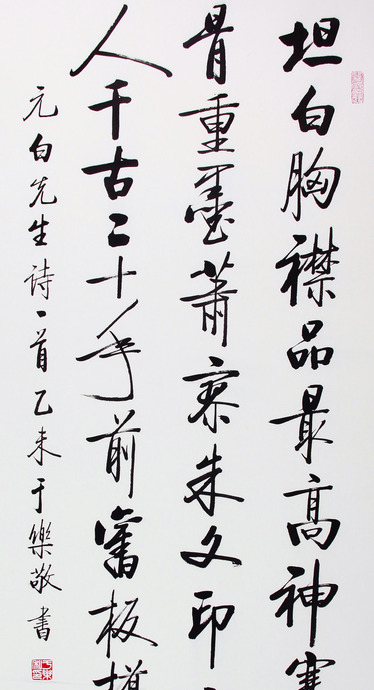 坦白胸襟品最高神寒
骨重墨蕭寥朱文印
人千古二十年前舊板
元白先生詩一首乙未于樂敬書